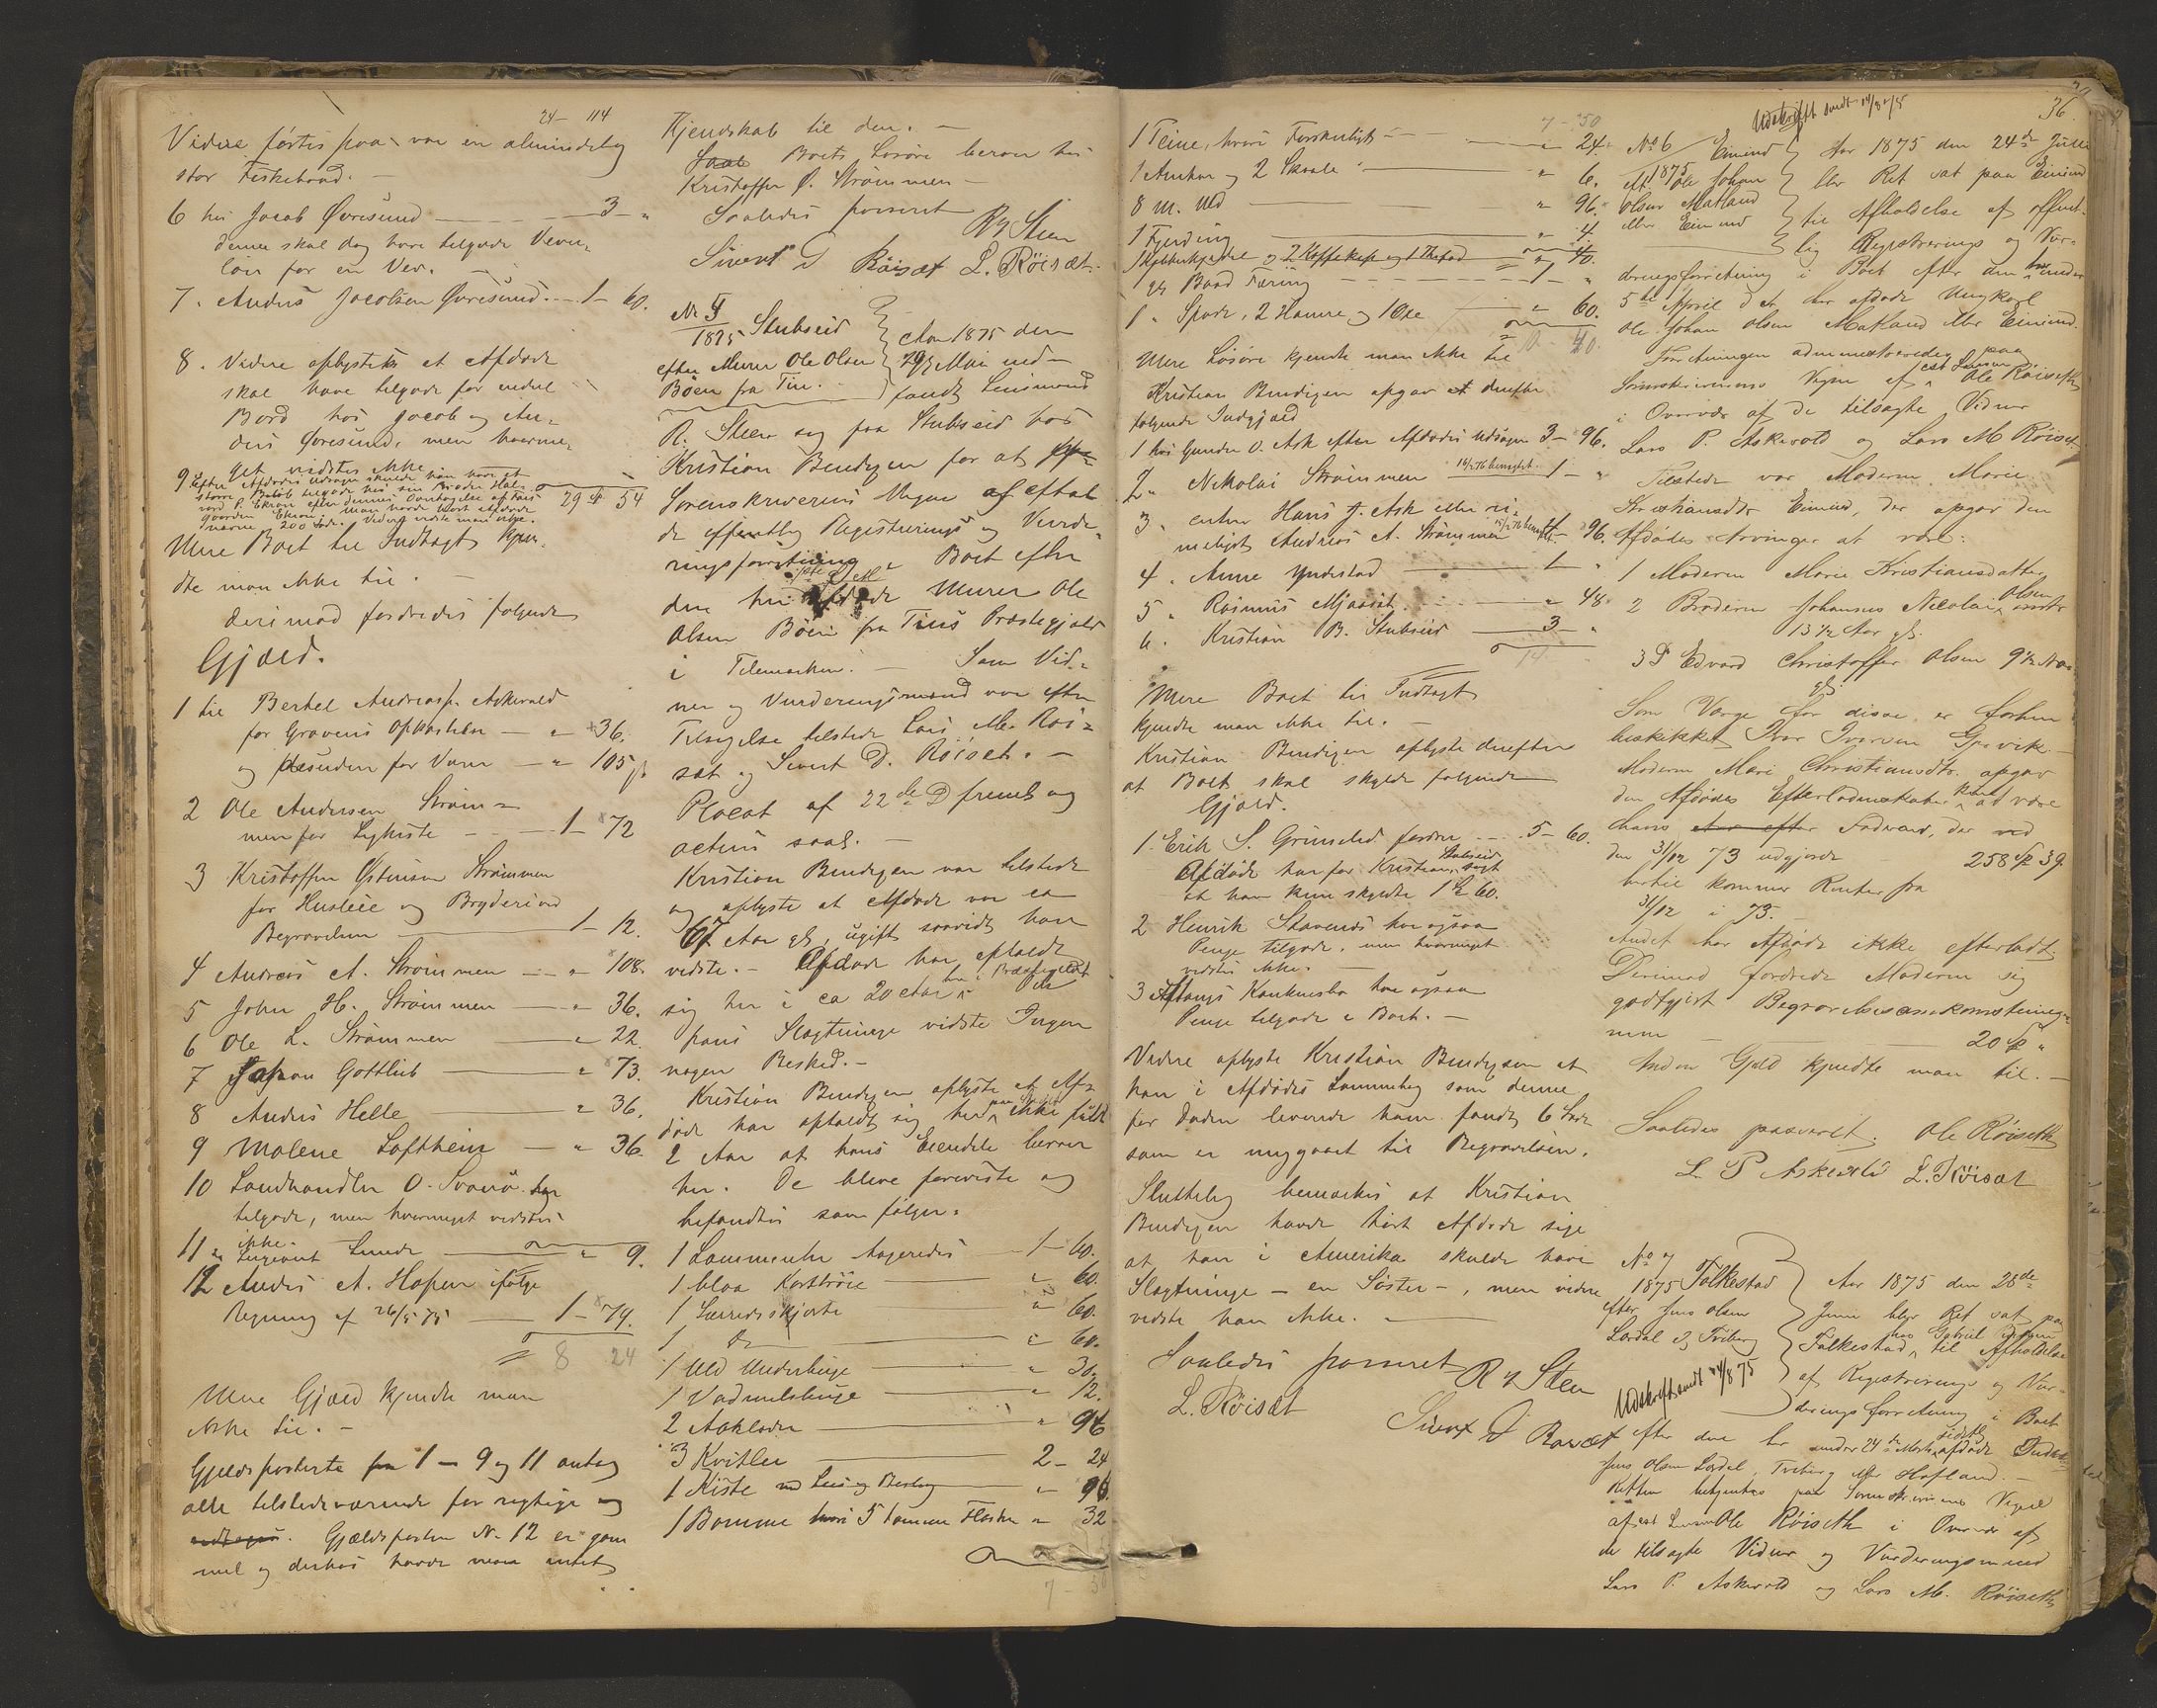 24 - 114
Videre førtes paa var en almindelig
stor Fiskebaad. -
6 hos Jacob Øvresund - 3 - "
denne skal dog have tilgode Veder-
løn for en Vev. -
7. Anders Jacobsen Øvresund - 1 - 60.
8. Videre oplystes at Afdøde
skal have tilgode for endel
Bord hos Jacob og An-
ders Øvresund, men hvorme-
get vidstes ikke
9 Efter Afdødes Udsagn skulde han have et
større Beløb tilgode hos sin Broder Hal-
vord P. Ekron efter dennes Overtagelse af
gaarden Ekron. Man havde hørt Afdøde
nævne 200 Sdr. Videre vidste man ikke.
29 54
Mere Boet til Indtægt kjen-
dte man ikke til. -
Derimod fordredes følgende
Gjæld.
1 til Bertel Andreas. Askevold
for Gravens Opkastelse - " 36.
og desuden for Varer - " 105
2 Ole Andersen Strøm-
men for Ligkiste - 1 - 72
3 Kristoffer Østensen Strømmen
for Husleie og Bryderi ved
Begravelsen 1 - 12.
4 Andreas A. Strømmen - " 108.
5 John H. Strømmen - " 36.
6 Ole L. Strømmen " 22.
7 Johan Gottlieb " 73.
8 Anders Helle " 36.
9 Malene Loftheim - " 36.
10 Landhandler O. Svanø har
tilgode, men hvormeget vidstes
ikke.
11 " Sergeant Lunde " 9.
12 Anders A. Hopen ifølge
Regning af 26/5 75 1 - 79.
8 24
Mere Gjæld kjendte man
ikke til. -
Gjældsposterne fra 1 - 9 og 11 antog
alle tilstedeværende for rigtige og
. Gjældsposten No 12 er gam
mel og derhos havde man intet
Kjendskab til den. -
Boets Løsøre beror hos
Kristoffer Ø. Strømmen -
Saaledes passeret
R Steen
Sivert D Röisæt L. Röisæt.
No 5
1875 Stubseid
efter Murer Ole Olsen
Böen fra Tin.
Aar 1875 den
29de Mai ind-
fandt Lensmand
R. Steen sig paa Stubseid hos
Kristian Bendixen for at
Sorenskriverens Vegne afhol-
de offentlig Registrerings og Vurde-
ringsforretning i Boet efter
den her afdøde Murer Ole
Olsen Böen fra Tins Præstegjæld
i Telemarken. - Som Vid-
ner og Vurderingsmænd var efter
Tilsigelse tilstede Lars M. Røi-
sæt og Sivert D. Röiset. -
Placat af 22de D freml. og
acteres saal. -
Kristian Bendixen var tilstede
og oplyste at Afdøde var ca
67 Aar gl., ugift saavidt han
vidste. - Afdøde har opholdt
sig her i ca 20 Aar her i Præstegjeldet Om
hans Slægtninge vidste Ingen
nogen Besked. -
Kristian Bendixen oplyste at Af-
døde har opholdt sig her ikke fuldt
2 Aar at hans Eiendele beror
her. De bleve foreviste og
befandtes som følger.
1 Lommeuhr taxeredes 1 - 60.
1 blaa Kortrøie " 60.
1 Lærredsskjorte " 60.
1 Do " 60.
1 Uld Underbuxe " 30.
1 Vadmelsbuxe " 12.
2 Aaklæder " 96
3 Kvitler 2 - 24
1 Kiste med Laas og Beslag " 96.
1 Bomme hvori 5 tomme Flasker " 32
7 - 50
7 - 50
1 Teine, hvori Forskjelligt " 24.
1 Anker og 2 Skaale " 6.
8 m. Uld " 96.
1 Fjerding " 4
1 Kjøkkenkjedel og 2 Kaffekop og 1 Thefad " 40.
gl Baad Færing 1 - "
1 Spade, 2 Hamre og 1 Øxe " 60.
Mere Løsøre kjendte man ikke til
Kristian Bendixen opgav derefter
følgende Indgjæld
1 hos Gunder O. Ask efter Afdødes Udsagn 3 - 96.
2 " Nikolai Strømmen 1 - "
3 " enten Hans J. Ask eller ri-
meligst Andreas A. Strømmen 1 - 96.
4 " Anne Yndestad 1 "
5 " Rasmus Mjaaset " 48
6 " Kristian B. Stubseid 3 "
14
Mere Boet til Indtægt
kjendte man ikke til. -
Kristian Bendixen oplyste derefter
at Boet skal skylde følgende
Gjæld.
1. Erik S. Grimelid fordrer 5 - 60.
Afdøde har for Kristian Stubseid sagt
at han kun skyldte 1 60.
2 Henrik Stavenes har ogsaa
Penge tilgode, men hvormeget
vidstes ikke. -
3 Konkursbo har ogsaa
Penge tilgode i Boet. -
Videre oplyste Kristian Bendixen at
han i Afdødes Lommebog som denne
før Døden leverede ham fandt 6 Sdr
som er medgaaet til Begravelsen.
Sluttelig bemærkes at Kristian
Bendixen havde hørt Afdøde sige
at han i Amerika skulde have
Slægtninge - en Søster -, men videre
vidste han ikke. -
Saaledes passeret
R Steen
L. Röisæt
Sivert D Røisæt
36.
Udskrift sendt 14/8 75
No 6
1875 Eimind
eft. Ole Johan
Olsen Matland
eller Eimind
Aar 1875 den 24de Juni
blev Ret sat paa Eimind
til Afholdelse af offent-
lig Registrerings og Vur-
deringsforretning i Boet efter den her under
5te April d. A. her afdøde Ungkarl
Ole Johan Olsen Matland eller Eimind.
Forretningen administreredes paa
Sorenskriverens Vegne af cst Lensm Ole Röiseth
i Overvær af de tilsagte Vidner
Lars P. Askevold og Lars M Röiset.
Tilstede var Moderen Marie
Kristiansdtr Eimind, der opgav den
Afdødes Arvinger at være:
1 Moderen Marie Kristiansdatter
2 Broderen Johannes Nicolai Olsen
13 1/2 Aar gl.
3 D Edvard Christoffer Olsen 9 1/2 Aar
gl.
Som Værge for disse er forhen
beskikket Ivar Iversen Gjevik. -
Moderen Mari Christiansdtr. opgav
den Afdødes Efterladenskaber at være
hans Fadrearv, der ved
den 31/12 73 udgjorde 258 39
hertil kommer Renter fra
31/12 i 73. -
Andet har Afdøde ikke efterladt.
Derimod fordrede Moderen sig
godtgjort Begravelsesomkostninger-
ne 20 "
Anden Gjeld kjendte man til. -
Saaledes passeret. Ole Röiseth
L. P Askevold L. Röisæt
No 7
1875 Folkestad
efter Jens Olsen
Lordal Tviberg
Udskrift sendt 14/8 75
Aar 1875 den 28de
Juni blev Ret sat paa
Folkestad hos Gabriel til Afholdelse
af Registrerings og Vur-
deringsforretning i Boet
efter den her under 24de Marts sidstl. afdøde
Jens Olsen Lordal, Tviberg eller Hofland. -
Retten betjentes paa Sorenskriverens Vegne
af cst Lensm Ole Röiseth i Overvær af
de tilsagte Vidner og Vurderingsmænd
Lars P. Askevold og Lars M. Röiseth